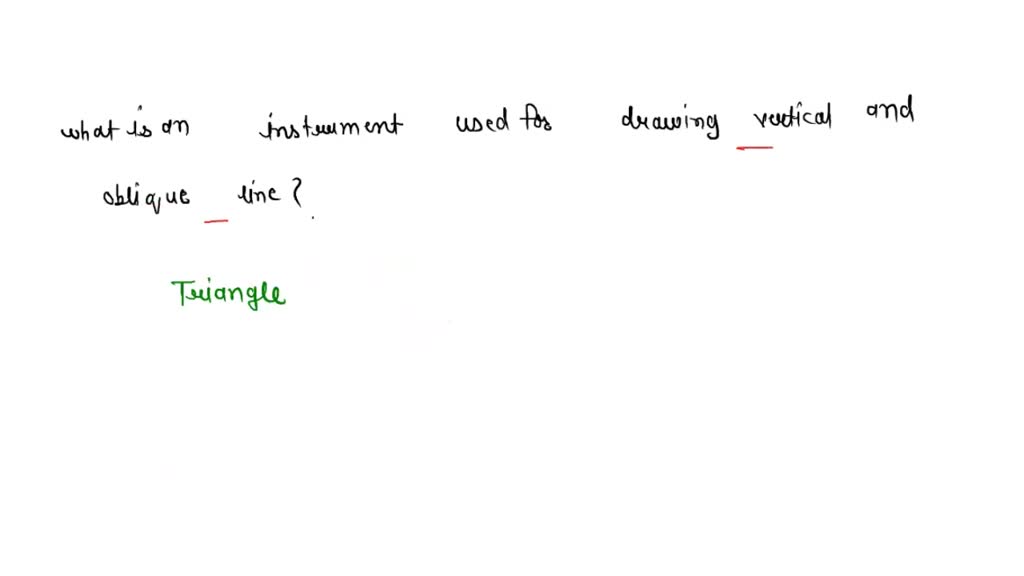 what is an instrument used for drawing vertical and
oblique line?
Triangle